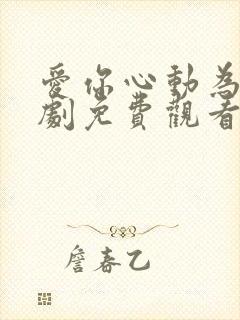 愛你心動為
劇免費觀看
詹春乙